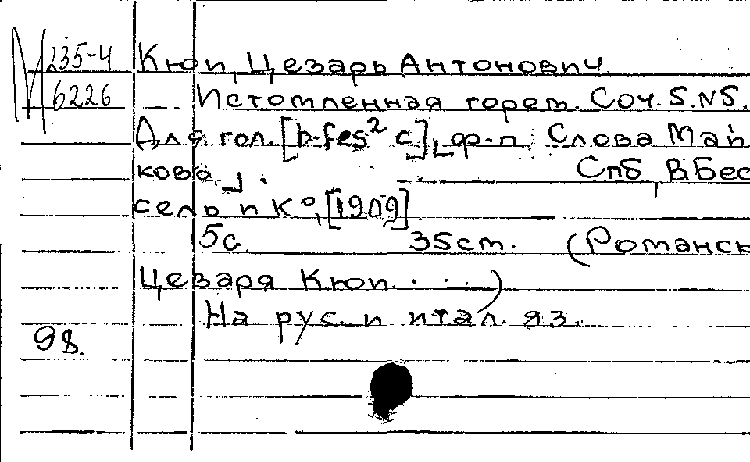 М 235-4
6226
Кюи, Цезарь Антонович.
— Истомленная горем. Соч. 5. N5.
Для гол. [b-fes² c], ф-п. Слова Май
кова. Спб, В. Бес
сель и К°, [1909]
5с. 35см. (Романсы
Цезаря Кюи. . . .)
На рус. и итал. яз.
98.